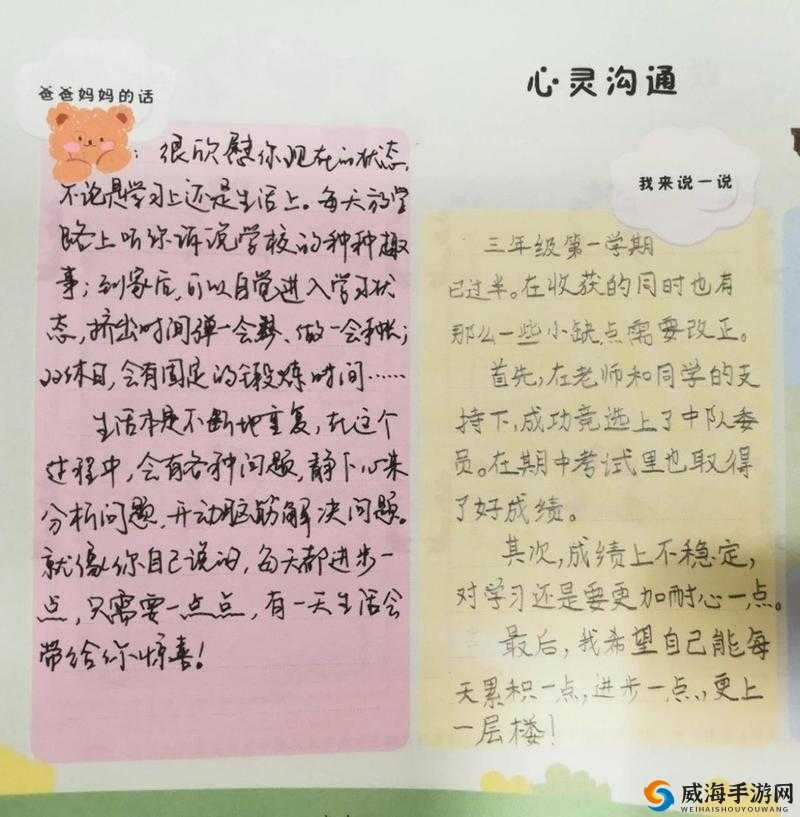 心灵沟通
爸爸妈妈的话
：很欣慰你现在的状态，
不论是学习上还是生活上。每天放学
路上听你诉说学校的种种趣
事；到家后，可以自觉进入学习状
态，挤出时间弹一会琴、做一会手帐；
双休日，会有固定的锻炼时间……
生活本是不断地重复，在这个
过程中，会有各种问题，静下心来
分析问题，开动脑筋解决问题。
就像你自己说的，每天都进步一
点，只需要一点点，有一天生活会
带给你惊喜！
我来说一说
三年级第一学期
已过半。在收获的同时也有
那么一些小缺点需要改正。
首先，在老师和同学的支
持下，成功竞选上了中队委
员。在期中考试里也取得
了好成绩。
其次，成绩上不稳定，
对学习还是要更加耐心一点。
最后，我希望自己能每
天累积一点，进步一点，更上
一层楼！
威海手游网
WEIHAISHOUYOUWANG